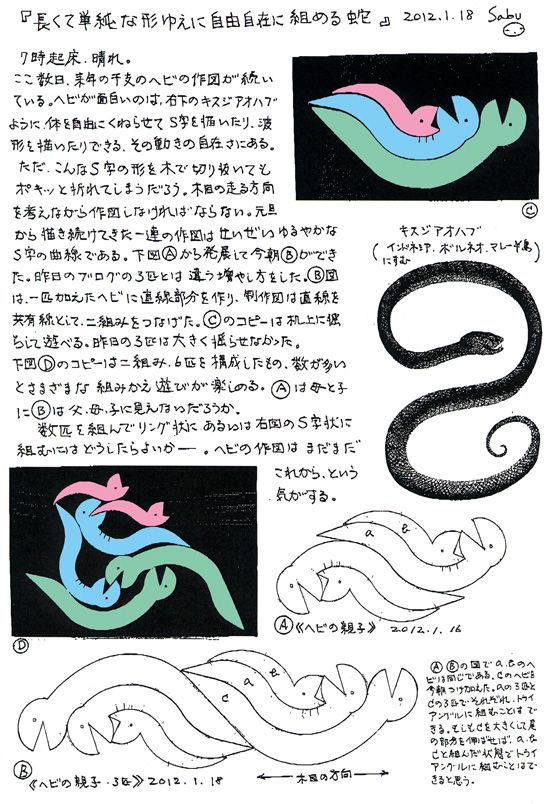 『長くて単純な形ゆえに自由自在に組める蛇』 2012.1.18 Sabu
7時起床.晴れ。
ここ数日、来年の干支のヘビの作図が続い
ている。ヘビが面白いのは、右下のキスジアオハブ
ように、体を自由にくねらせてS字を描いたり、波
形を描いたりできる、その動きの自在さにある。
ただ、こんなS字の形を木で切り抜いても
ポキッと折れてしまうだろう。木目の走る方向
を考えながら作図しなければならない。元旦
から描き続けてきた一連の作図はせいぜいゆるやかな
S字の曲線である。下図Ⓐから発展して今朝Ⓑができ
た。昨日のブログの3匹とは違う増やし方をした。Ⓑ図
は、一匹加えたヘビに直線部分を作り、制作図は直線を
共有線として、二組みをつなげた。Ⓒのコピーは机上に揺
らして遊べる。昨日の3匹は大きく揺らせなかった。
下図Ⓓのコピーは二組み、6匹を構成したもの、数が多い
とさまざまな組みかえ遊びが楽しめる。Ⓐは母と子
にⒷは父、母、子に見えないだろうか。
数匹を組んでリング状にあるいは右図のS字状に
組むにはどうしたらよいか―。ヘビの作図はまだまだ
これから、という
気がする。
Ⓒ
キスジアオハブ
(インドネシア、ボルネオ、マレー半島
にすむ
Ⓓ
a b
Ⓐ《ヘビの親子》 2012.1.16
c a b
Ⓑ《ヘビの親子・3匹》2012.1.18
木目の方向
ⒶⒷの図でa.bのヘ
ビは同じである、Cのヘビを
今朝つけ加えた。aの3匹と
Cの3匹でそれぞれ、トライ
アングルに組むことはで
きる。もしもCを大きくして尾
の部分を伸ばせば、a.b.
Cと組んだ状態でトライ
アングルに組むことはで
きると思う。